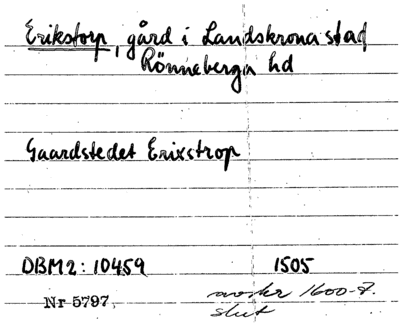 Erikstorp, gård i Landskrona stad
Rönneberga hd
Gaardstedet Erixstrop
DBM2: 10459 1505
Nr 5797. avskr 1600-t.
slut